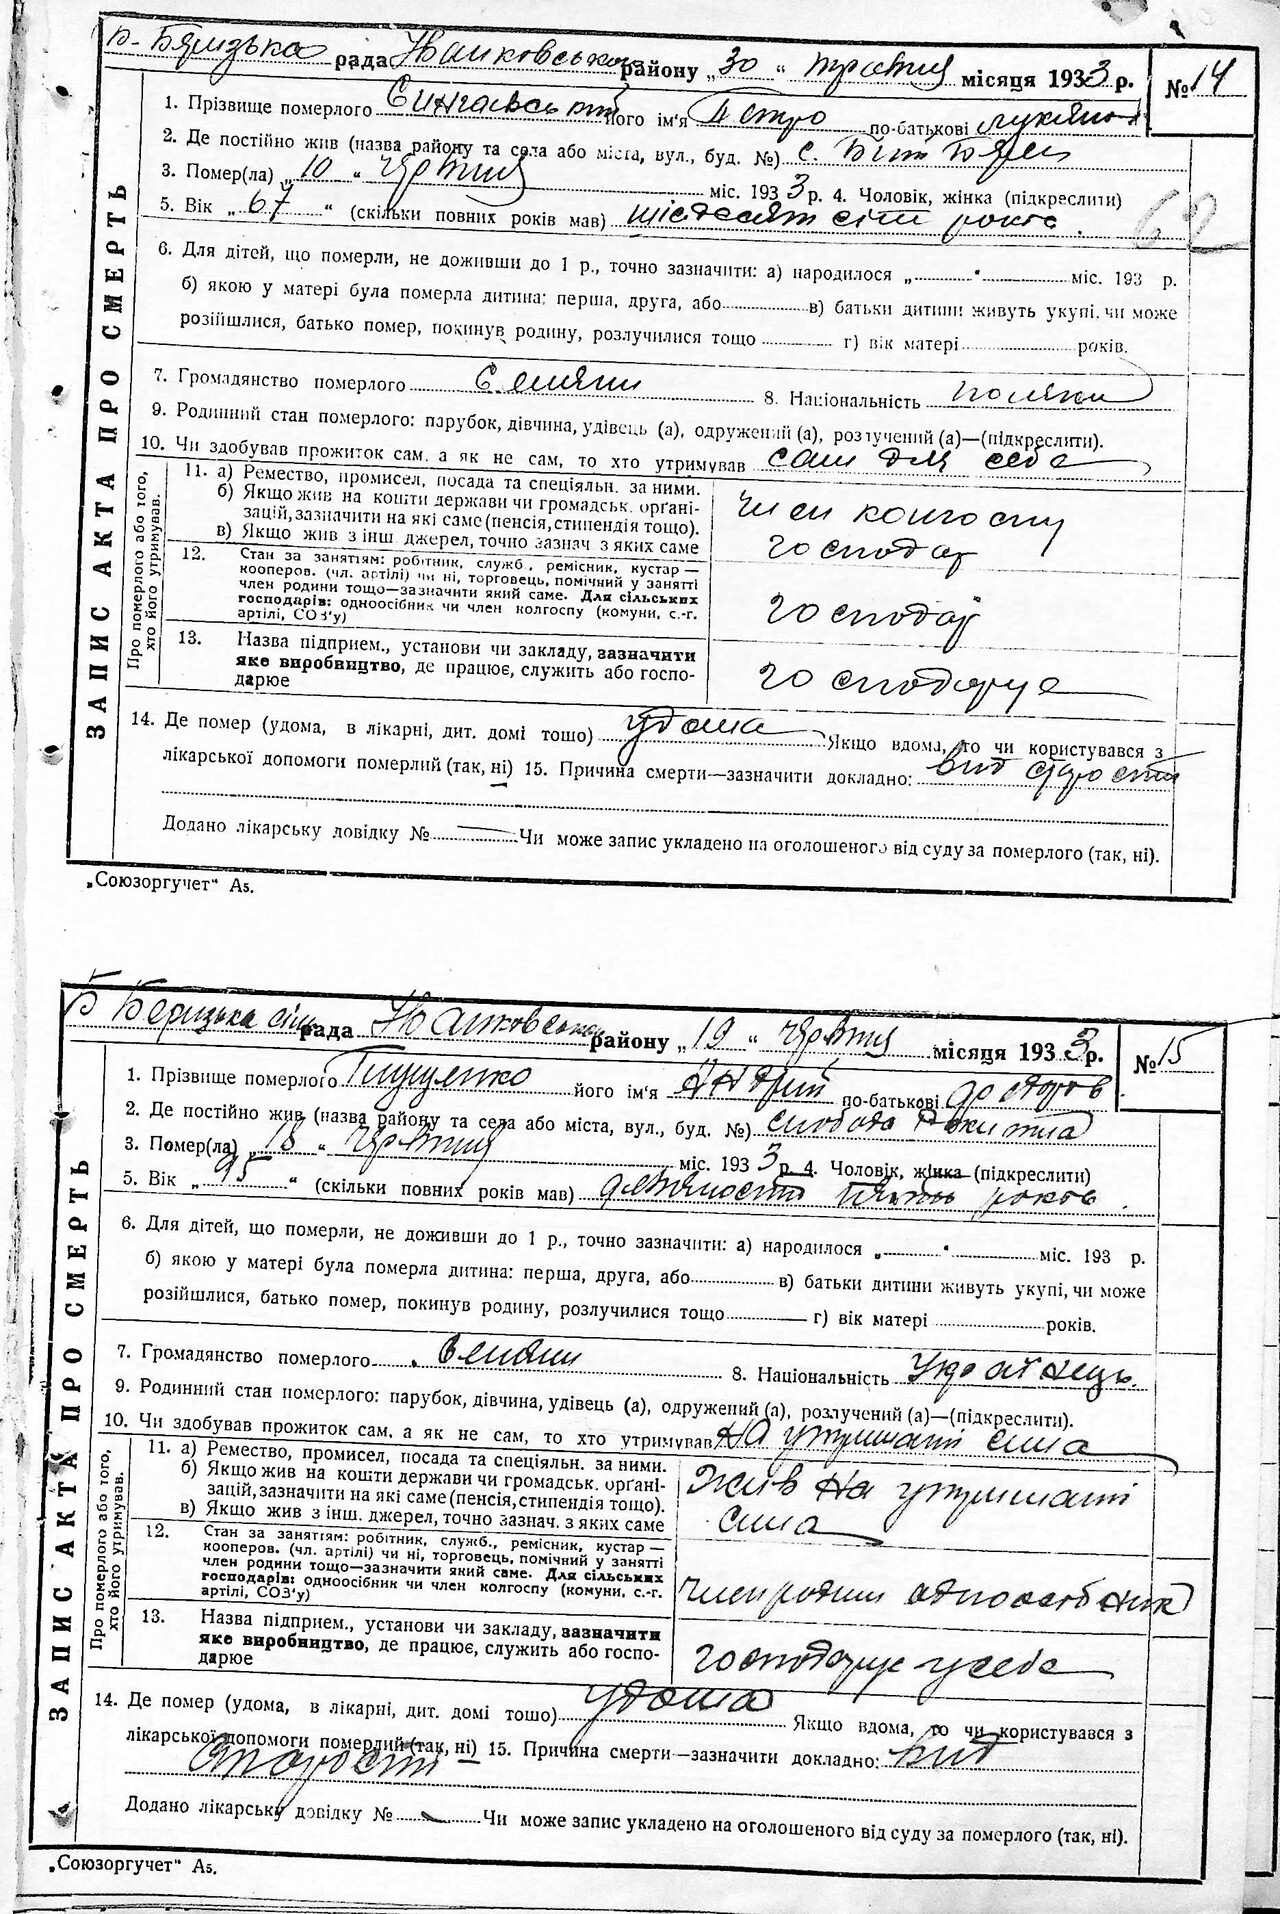 Б-Бяризька рада Іванковського району „30“ травня місяця 1933 р. № 14
ЗАПИС АКТА ПРО СМЕРТЬ
1. Прізвище померлого Сингаєвський його ім'я Петро по-батькові Лукянов
2. Де постійно жив (назва району та села або міста, вул., буд. №) с.
3. Помер(ла) „10“ червня міс. 1933 р. 4. Чоловік, жінка (підкреслити)
5. Вік „67“ (скільки повних років мав) шістдесят сім років. 62
6. Для дітей, що померли, не доживши до 1 р., точно зазначити: а) народилося „ “ міс. 193 р.
б) якою у матері була померла дитина: перша, друга, або в) батьки дитини живуть укупі, чи може
розійшлися, батько помер, покинув родину, розлучилися тощо г) вік матері років.
7. Громадянство померлого 8. Національність поляки
9. Родинний стан померлого: парубок, дівчина, удівець (а), одружений (а), розлучений (а)—(підкреслити).
10. Чи здобував прожиток сам, а як не сам, то хто утримував сам для себе
Про померлого або того, хто його утримував.
11. а) Ремество, промисел, посада та спеціяльн. за ними.
б) Якщо жив на кошти держави чи громадськ. орґані-
зацій, зазначити на які саме (пенсія, стипендія тощо).
в) Якщо жив з інш. джерел, точно зазнач з яких саме
член колгоспу
господар
12. Стан за занятіям: робітник, служб., ремісник, кустар—
кооперов. (чл. артілі) чи ні, торговець, помічний у занятті
член родини тощо—зазначити який саме. Для сільських
господарів: одноосібник чи член колгоспу (комуни, с.-г.
артілі, СОЗ'у)
господар
13. Назва підприєм., установи чи закладу, зазначити
яке виробництво, де працює, служить або госпо-
дарює
господарує
14. Де помер (удома, в лікарні, дит. домі тощо) удома Якщо вдома, то чи користувався з
лікарської допомоги померлий (так, ні) 15. Причина смерти—зазначити докладно: вид старости
Додано лікарську довідку № Чи може запис укладено на оголошеного від суду за померлого (так, ні).
„Союзоргучет“ А5.
Б Беризька сіль рада Іванковського району „19“ червня місяця 1933 р. № 15
ЗАПИС АКТА ПРО СМЕРТЬ
1. Прізвище померлого його ім'я Андрій по-батькові
2. Де постійно жив (назва району та села або міста, вул., буд. №) слобода
3. Помер(ла) „18“ червня міс. 1933 р. 4. Чоловік, жінка (підкреслити)
5. Вік „95“ (скільки повних років мав) девяносто пять років.
6. Для дітей, що померли, не доживши до 1 р., точно зазначити: а) народилося „ “ міс. 193 р.
б) якою у матері була померла дитина: перша, друга, або в) батьки дитини живуть укупі, чи може
розійшлися, батько помер, покинув родину, розлучилися тощо г) вік матері років.
7. Громадянство померлого 8. Національність Українець.
9. Родинний стан померлого: парубок, дівчина, удівець (а), одружений (а), розлучений (а)—(підкреслити).
10. Чи здобував прожиток сам, а як не сам, то хто утримував на утриманні сина
Про померлого або того, хто його утримував.
11. а) Ремество, промисел, посада та спеціяльн. за ними.
б) Якщо жив на кошти держави чи громадськ. орґані-
зацій, зазначити на які саме (пенсія, стипендія тощо).
в) Якщо жив з інш. джерел, точно зазнач. з яких саме
жив на утриманні
сина
12. Стан за занятіям: робітник, служб., ремісник, кустар—
кооперов. (чл. артілі) чи ні, торговець, помічний у занятті
член родини тощо—зазначити який саме. Для сільських
господарів: одноосібник чи член колгоспу (комуни, с.-г.
артілі, СОЗ'у)
член родини одноосібник
13. Назва підприєм., установи чи закладу, зазначити
яке виробництво, де працює, служить або госпо-
дарює
господарує у себе
14. Де помер (удома, в лікарні, дит. домі тощо) удома Якщо вдома, то чи користувався з
лікарської допомоги померлий (так, ні) 15. Причина смерти—зазначити докладно: вид
старости
Додано лікарську довідку № Чи може запис укладено на оголошеного від суду за померлого (так, ні).
„Союзоргучет“ А5.